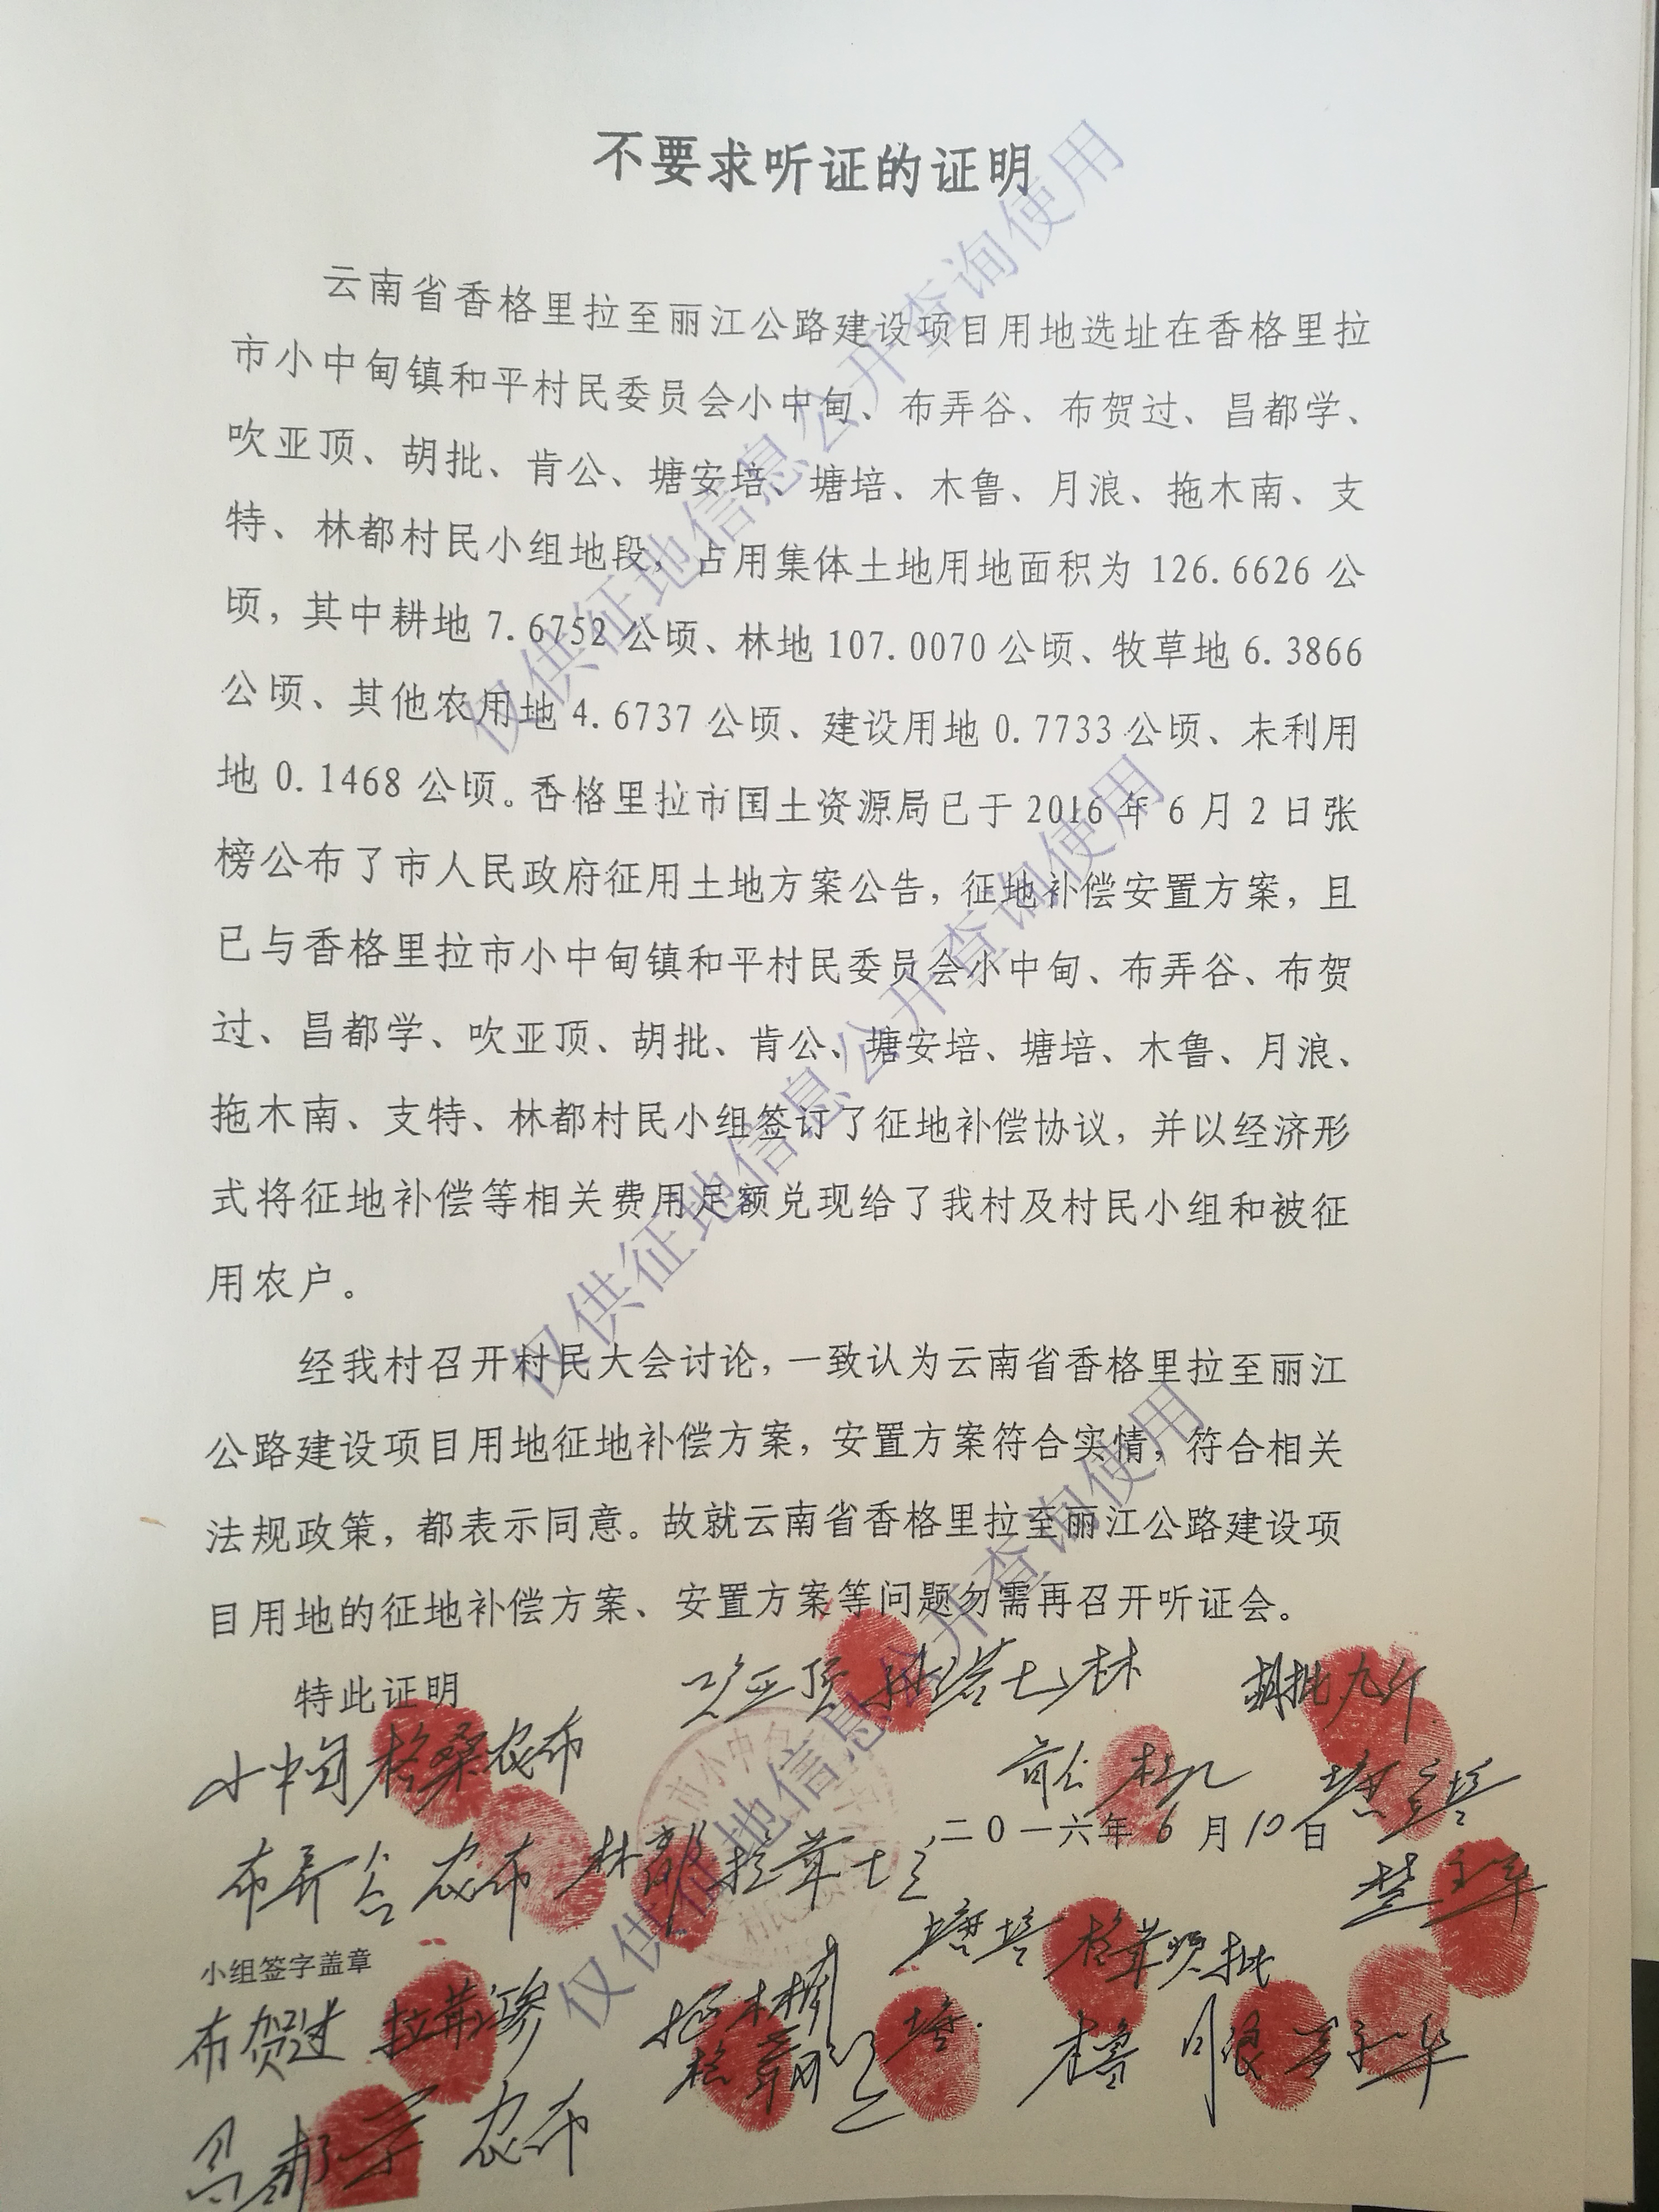 不要求听证的证明
云南省香格里拉至丽江公路建设项目用地选址在香格里拉
市小中甸镇和平村民委员会小中甸、布弄谷、布贺过、昌都学、
吹亚顶、胡批、肯公、塘安培、塘培、木鲁、月浪、拖木南、支
特、林都村民小组地段，占用集体土地用地面积为 126.6626 公
顷，其中耕地 7.6752 公顷、林地 107.0070 公顷、牧草地 6.3866
公顷、其他农用地 4.6737 公顷、建设用地 0.7733 公顷、未利用
地 0.1468 公顷。香格里拉市国土资源局已于 2016 年 6 月 2 日张
榜公布了市人民政府征用土地方案公告，征地补偿安置方案，且
已与香格里拉市小中甸镇和平村民委员会小中甸、布弄谷、布贺
过、昌都学、吹亚顶、胡批、肯公、塘安培、塘培、木鲁、月浪、
拖木南、支特、林都村民小组签订了征地补偿协议，并以经济形
式将征地补偿等相关费用足额兑现给了我村及村民小组和被征
用农户。
经我村召开村民大会讨论，一致认为云南省香格里拉至丽江
公路建设项目用地征地补偿方案，安置方案符合实情，符合相关
法规政策，都表示同意。故就云南省香格里拉至丽江公路建设项
目用地的征地补偿方案、安置方案等问题勿需再召开听证会。
特此证明
胡批
小中甸 格桑农布
二0一六年 6 月 10 日
布弄谷 农布 林都 拉茸
塘培 格茸
小组签字盖章
布贺过 拉茸
拖木南
格茸
木鲁 月浪
昌都学 农布
仅供征地信息公开查询使用
仅供征地信息公开查询使用
仅供征地信息公开查询使用